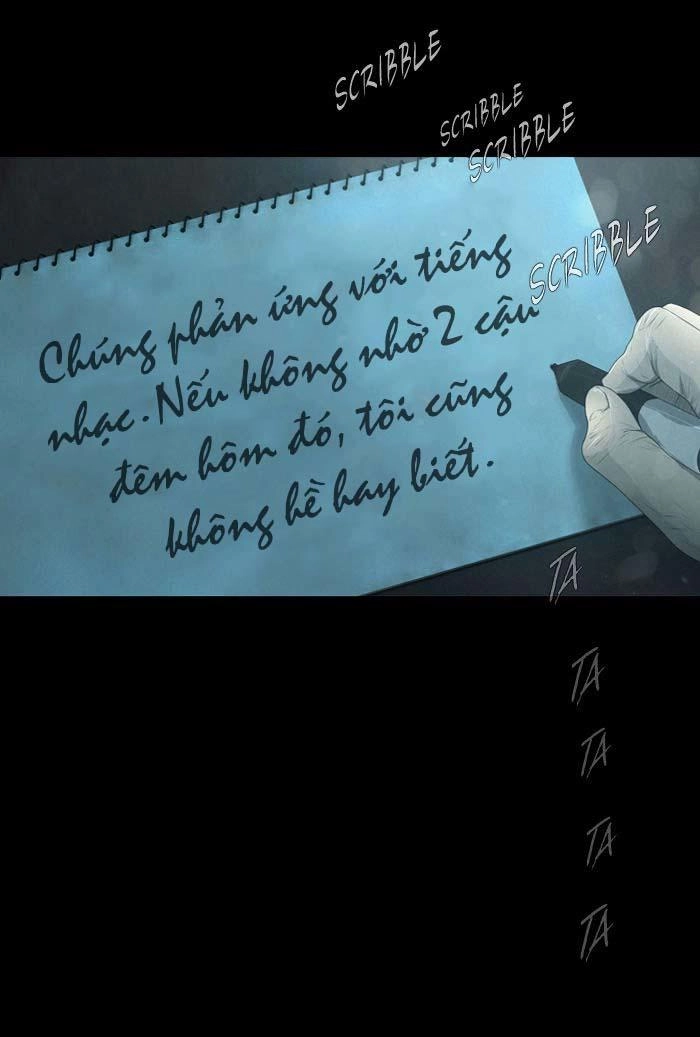 SCRIBBLE
SCRIBBLE
SCRIBBLE
SCRIBBLE
Chúng phản ứng với tiếng
nhạc. Nếu không nhờ 2 cậu
đêm hôm đó, tôi cũng
không hề hay biết.
TA
TA
TA
TA
TA